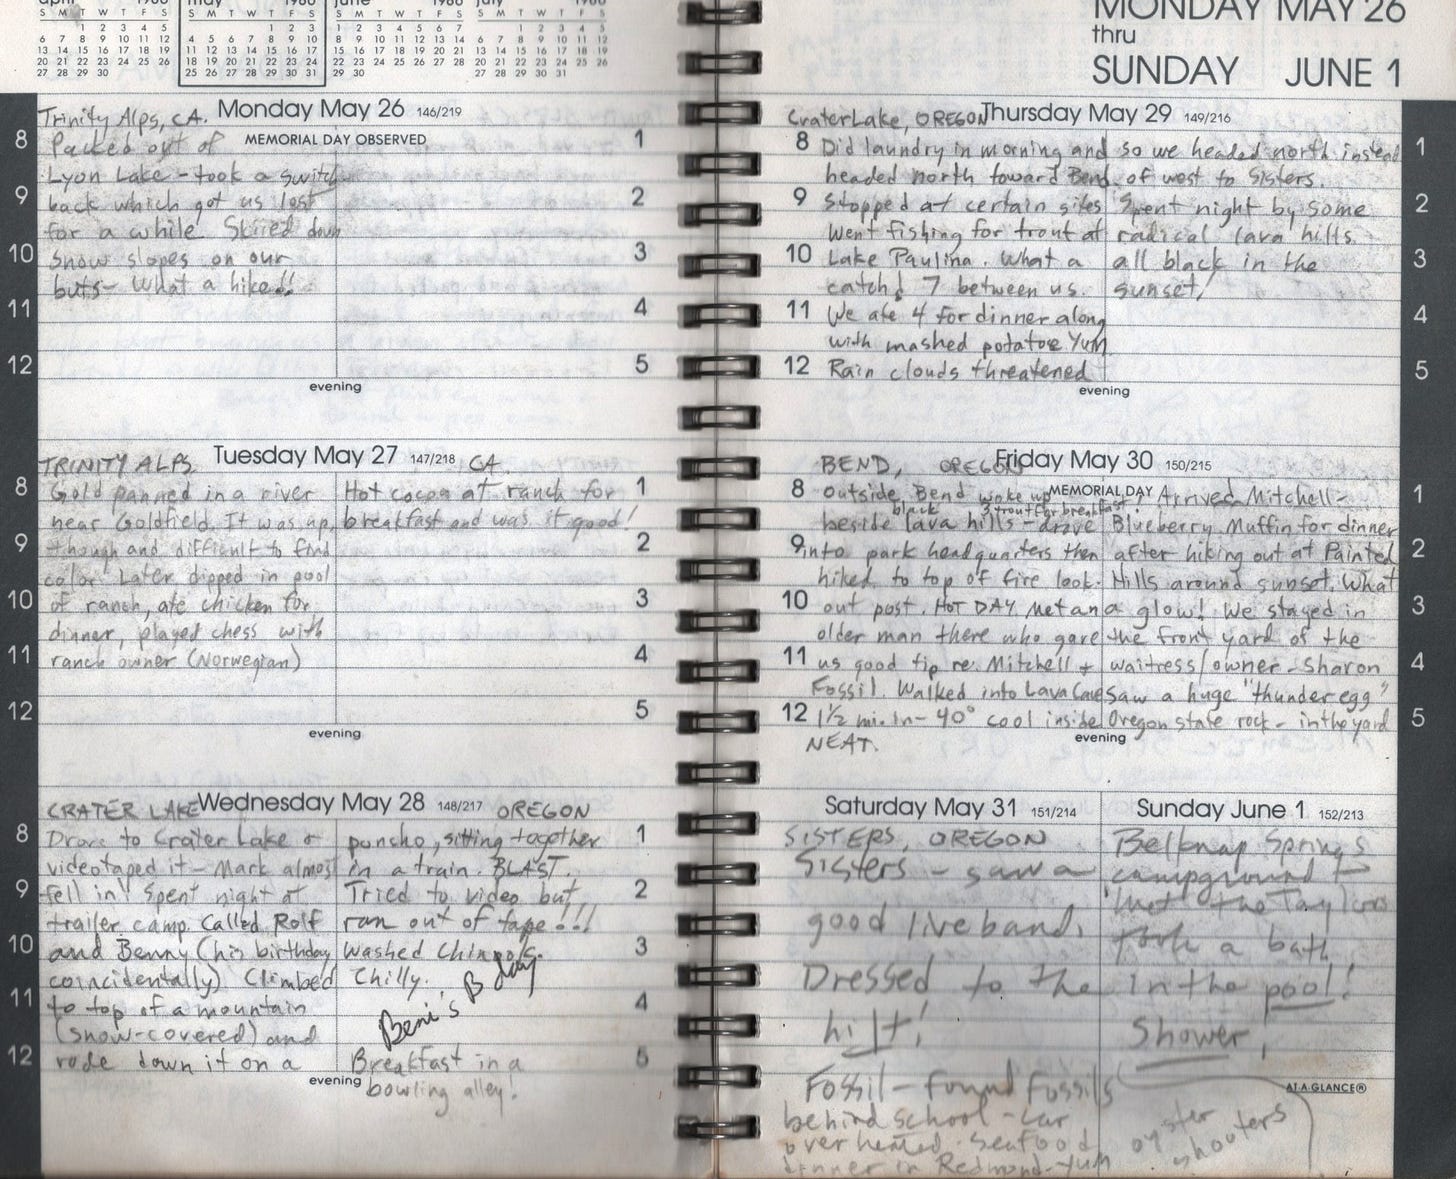 april 1986 may 1986 june 1986 july 1986
S M T W T F S
1 2 3 4 5
6 7 8 9 10 11 12
13 14 15 16 17 18 19
20 21 22 23 24 25 26
27 28 29 30
S M T W T F S
1 2 3
4 5 6 7 8 9 10
11 12 13 14 15 16 17
18 19 20 21 22 23 24
25 26 27 28 29 30 31
S M T W T F S
1 2 3 4 5 6 7
8 9 10 11 12 13 14
15 16 17 18 19 20 21
22 23 24 25 26 27 28
29 30
S M T W T F S
1 2 3 4 5
6 7 8 9 10 11 12
13 14 15 16 17 18 19
20 21 22 23 24 25 26
27 28 29 30 31
Trinity Alps, CA. Monday May 26 146/219
MEMORIAL DAY OBSERVED
8 Packed out of 1
Lyon Lake - took a switch
9 back which got us lost 2
for a while. Skiied down
10 snow slopes on our 3
buts - What a hike!!
11 4
12 5
evening
TRINITY ALPS Tuesday May 27 147/218 CA.
8 Gold panned in a river
near Goldfield. It was up,
9 though and difficult to find
color. Later dipped in pool
10 of ranch, ate chicken for
dinner, played chess with
11 ranch owner (Norwegian)
12
Hot cocoa at ranch for 1
breakfast and was it good!
2
3
4
5
evening
CRATER LAKE Wednesday May 28 148/217 OREGON
8 Drove to Crater Lake &
videotaped it - Mark almost
9 fell in! Spent night at
trailer camp. Called Rolf
10 and Benny (his birthday
coincidentally) Climbed
11 to top of a mountain
(snow-covered) and
12 rode down it on a
puncho, sitting together 1
in a train. BLAST.
Tried to video but 2
ran out of tape!!!
washed Chinpols. 3
Chilly.
Beni's B day 4
Breakfast in a 5
bowling alley!
evening
MONDAY MAY 26
thru
SUNDAY JUNE 1
Crater Lake, OREGON Thursday May 29 149/216
8 Did laundry in morning and
headed north toward Bend.
9 Stopped at certain sites
Went fishing for trout at
10 Lake Paulina. What a
catch! 7 between us.
11 We ate 4 for dinner along
with mashed potatoe Yum
12 Rain clouds threatened
so we headed north instead 1
of west to Sisters.
Spent night by some 2
radical lava hills.
all black in the 3
sunset!
4
5
evening
BEND, OREGON Friday May 30 150/215
MEMORIAL DAY
8 outside Bend woke up
black 3 trout for breakfast.
beside lava hills - drove
9 into park headquarters then
hiked to top of fire look-
10 out post. HOT DAY Met an
older man there who gave
11 us good tip re. Mitchell +
Fossil. Walked into Lava Cave
12 1½ mi. In - 40° cool inside
NEAT.
Arrived Mitchell - 1
Blueberry Muffin for dinner
after hiking out at Painted 2
Hills around sunset. What
a glow! We stayed in 3
the front yard of the
waitress/owner - Sharon 4
Saw a huge "thunder egg"
Oregon state rock - in the yard 5
evening
Saturday May 31 151/214
SISTERS, OREGON
Sisters - saw a
good live band.
Dressed to the
hilt!
Fossil - found fossils
behind school - car
overheated. Seafood
dinner in Redmond - Yum
Sunday June 1 152/213
Belknap Springs
campground -
"Met" the Taylors
took a bath
in the pool!
Shower!
AT-A-GLANCE®
oyster
shooters